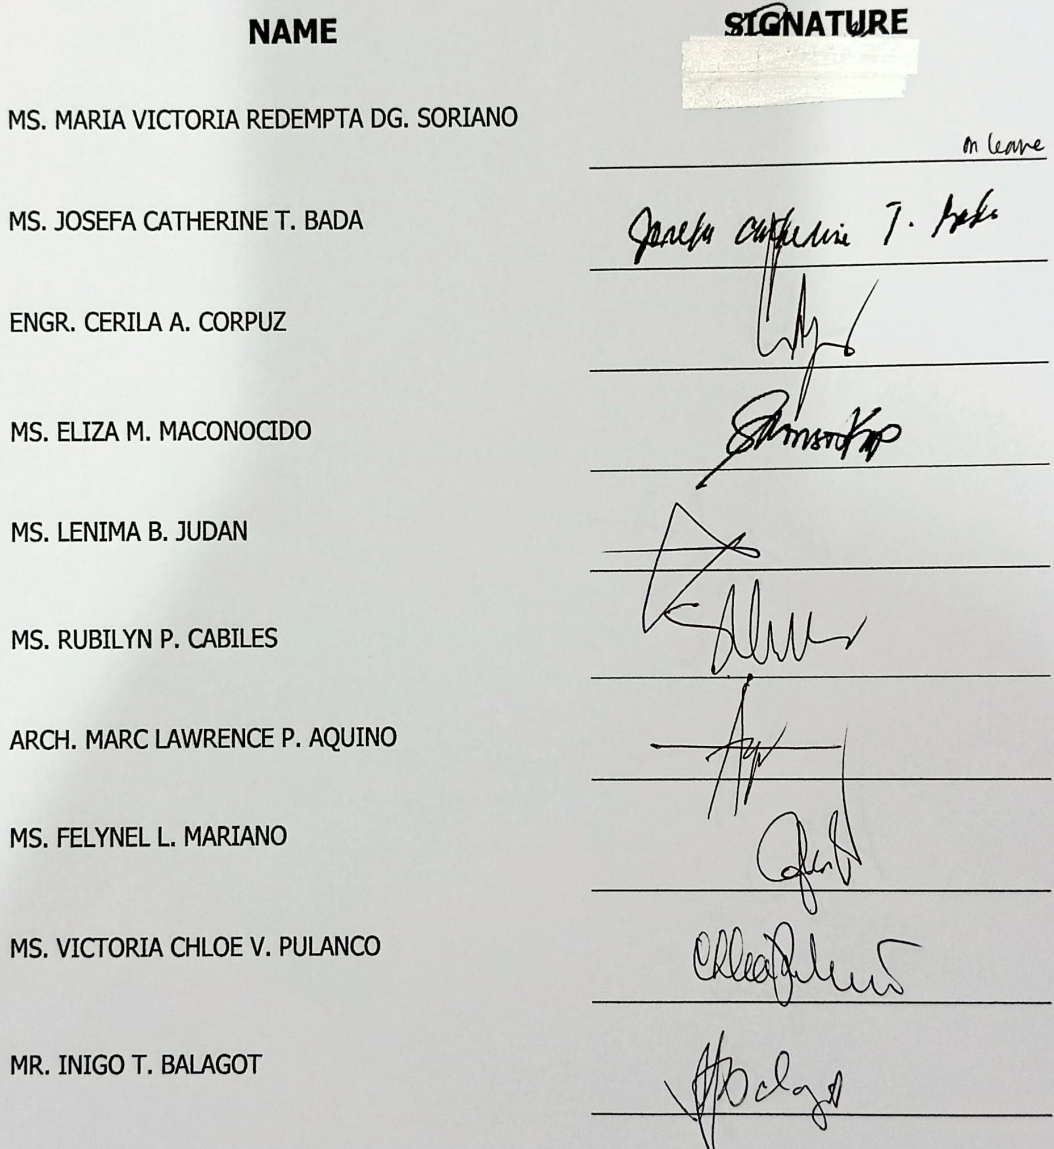 NAME SIGNATURE
MS. MARIA VICTORIA REDEMPTA DG. SORIANO
on leave
MS. JOSEFA CATHERINE T. BADA Josefa Catherine T. Bada
ENGR. CERILA A. CORPUZ
MS. ELIZA M. MACONOCIDO
MS. LENIMA B. JUDAN
MS. RUBILYN P. CABILES
ARCH. MARC LAWRENCE P. AQUINO
MS. FELYNEL L. MARIANO
MS. VICTORIA CHLOE V. PULANCO
MR. INIGO T. BALAGOT